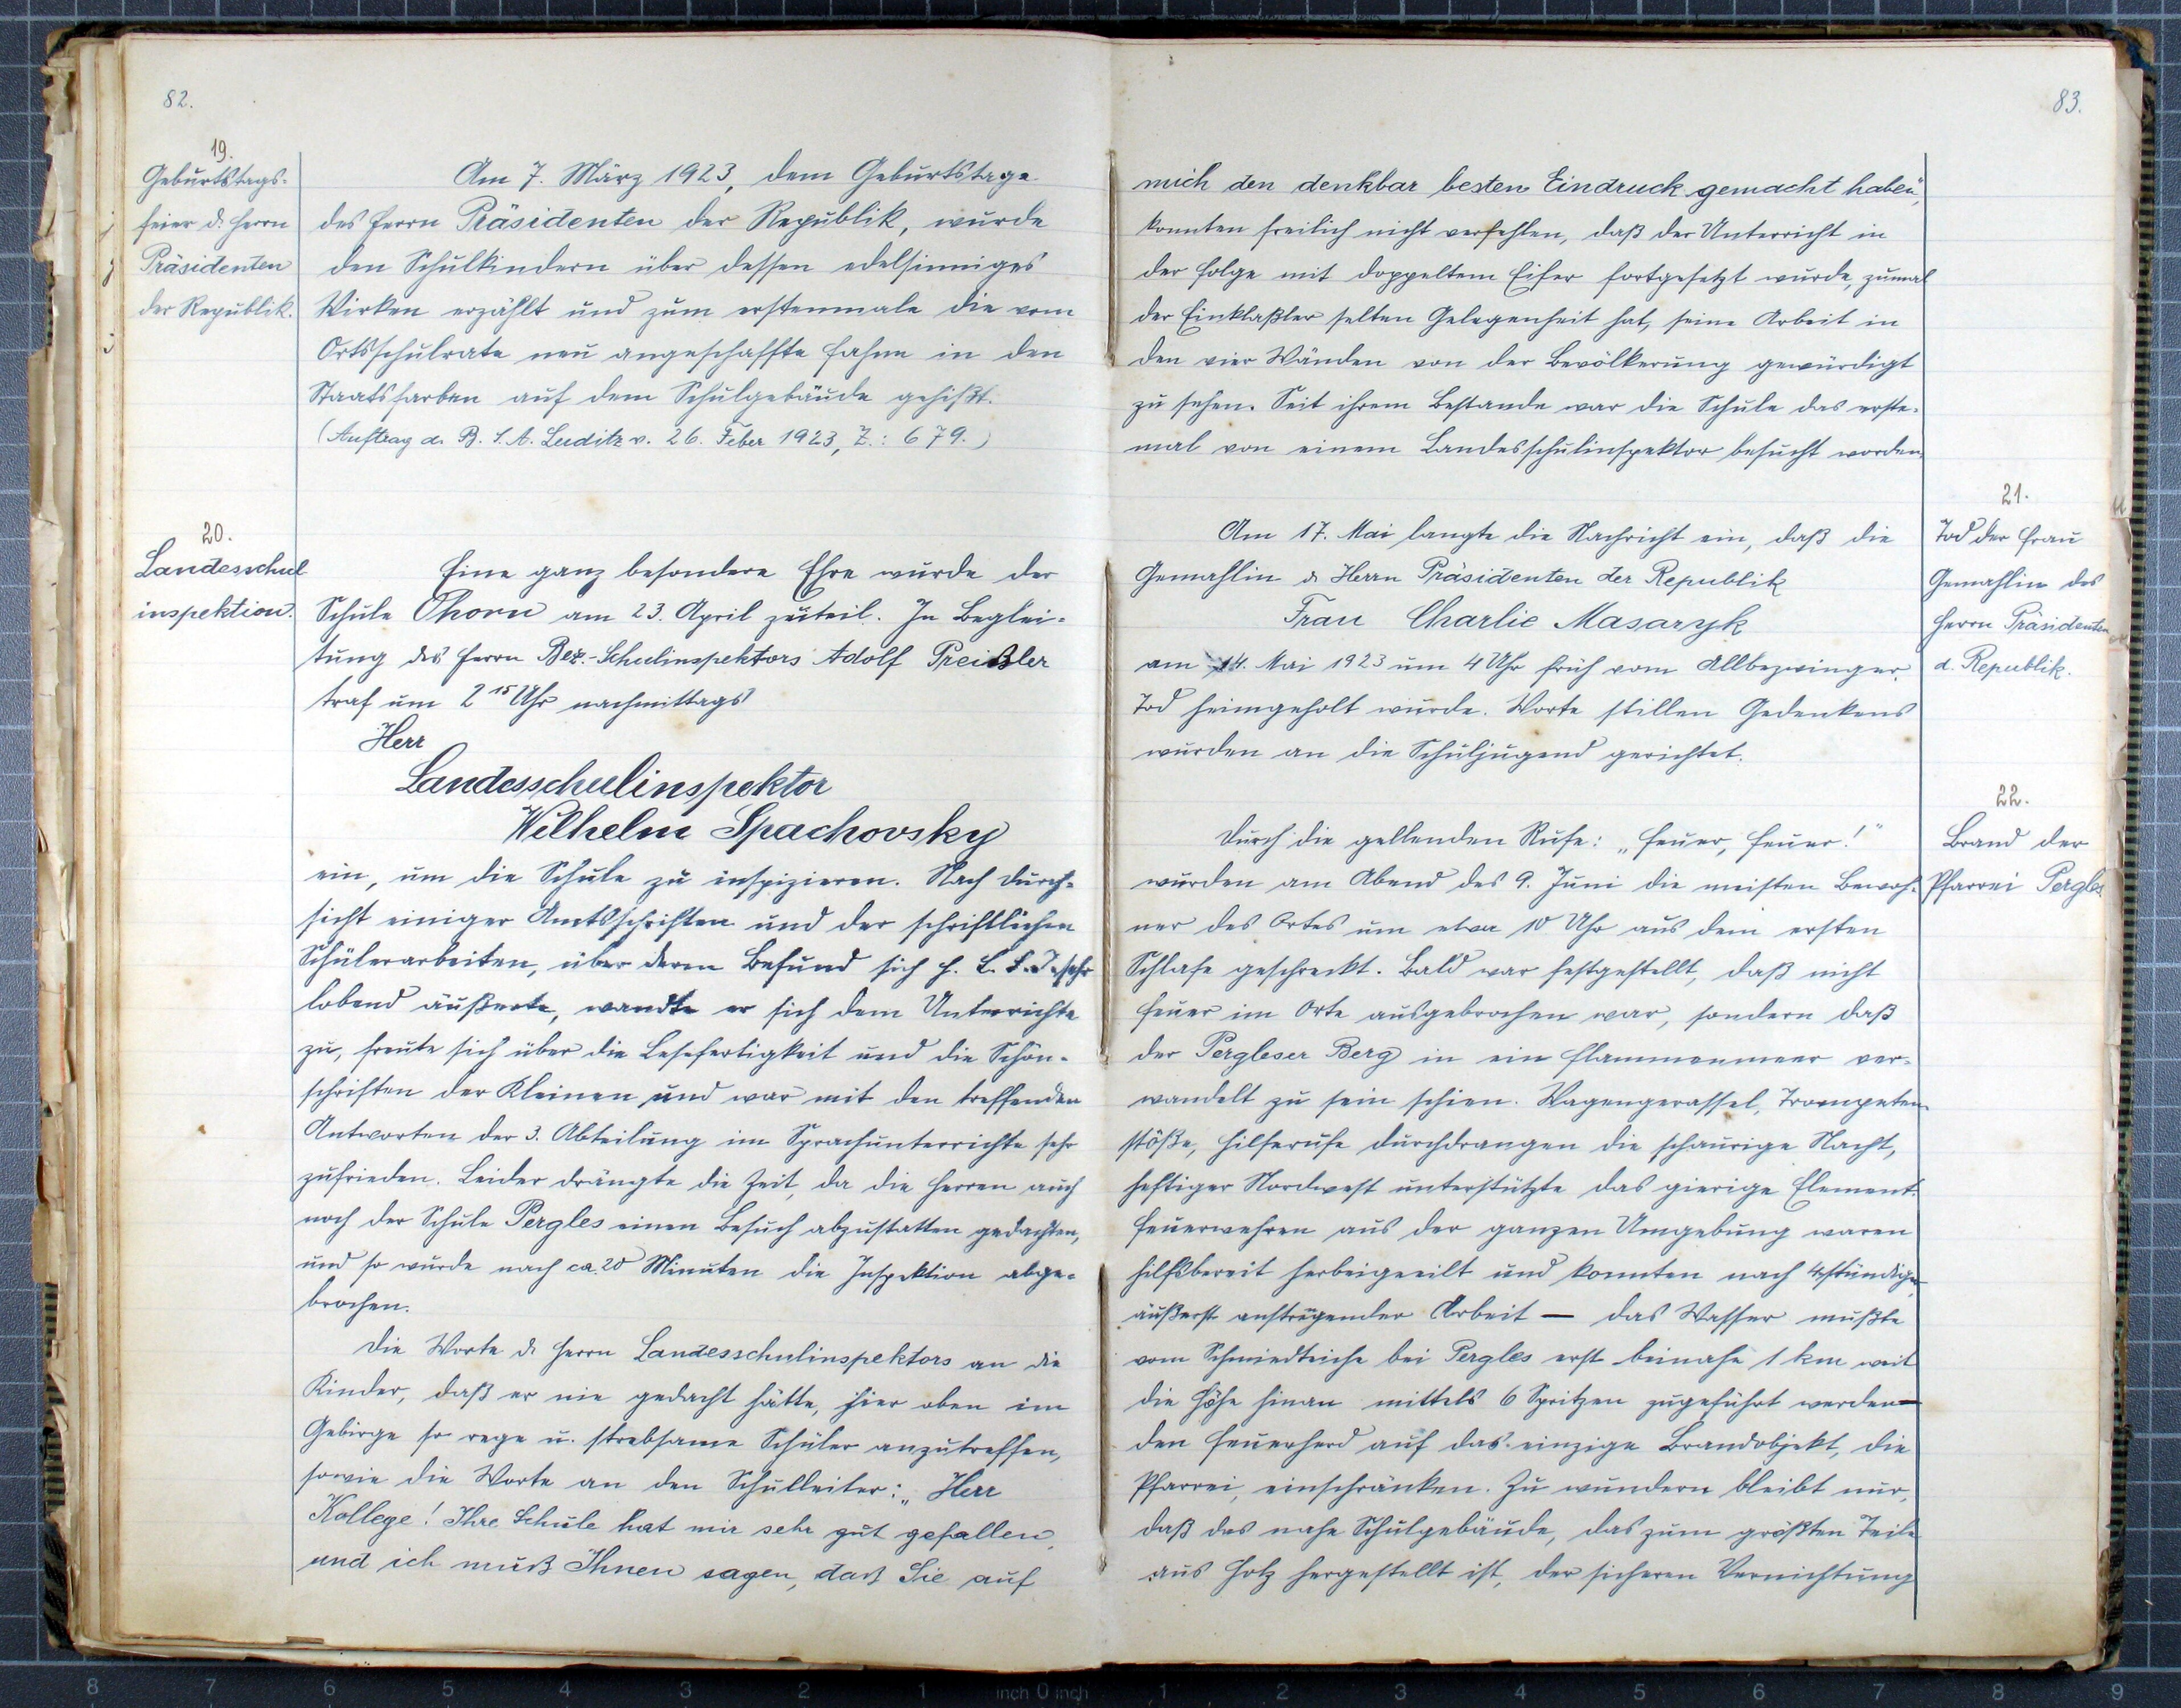 82.
19.
Geburtstags-
feier d. Herrn
Präsidenten
der Republik.
Am 7. März 1923, dem Geburtstage
des Herrn Präsidenten der Republik, wurde
den Schulkindern über dessen edelsinniges
Wirken erzählt und zum erstenmale die vom
Ortsschulrate neu angeschaffte Fahne in den
Staatsfarben auf dem Schulgebäude gehißt.
(Auftrag d. B. S. A. Luditz v. 26. Feber 1923, Z.: 679.)
20.
Landesschul
inspektion.
Eine ganz besondere Ehre wurde der
Schule Ohorn am 23. April zuteil. In Beglei-
tung des Herrn Bez.-Schulinspektors Adolf Preißler
traf um 2 15 Uhr nachmittags
Herr
Landesschulinspektor
Wilhelm Spachovsky
ein, um die Schule zu inspizieren. Nach Durch-
sicht einiger Amtsschriften und der schriftlichen
Schülerarbeiten, über deren Befund sich H. L. S. I. sehr
lobend äußerte, wandte er sich dem Unterrichte
zu, freute sich über die Lesefertigkeit und die Schön-
schriften der Kleinen und war mit den treffenden
Antworten der 3. Abteilung im Sprachunterrichte sehr
zufrieden. Leider drängte die Zeit, da die Herren auch
noch der Schule Pergles einen Besuch abzustatten gedachten,
und so wurde nach ca. 20 Minuten die Inspektion abge-
brochen.
Die Worte d. Herrn Landesschulinspektors an die
Kinder, daß er nie gedacht hätte, hier oben im
Gebirge so rege u. strebsame Schüler anzutreffen,
sowie die Worte an den Schulleiter: „Herr
Kollege! Ihre Schule hat mir sehr gut gefallen,
und ich muß Ihnen sagen, daß Sie auf
83.
mich den denkbar besten Eindruck gemacht haben",
konnten freilich nicht verfehlen, daß der Unterricht in
der Folge mit doppeltem Eifer fortgesetzt wurde, zumal
der Einklaßler selten Gelegenheit hat, seine Arbeit in
den vier Wänden von der Bevölkerung gewürdigt
zu sehen. Seit ihrem Bestande war die Schule das erste-
mal von einem Landesschulinspektor besucht worden.
21.
Tod der Frau
Gemahlin des
Herrn Präsidenten
d. Republik.
Am 17. Mai langte die Nachricht ein, daß die
Gemahlin d. Herrn Präsidenten der Republik
Frau Charlie Masaryk
am 14. Mai 1923 um 4 Uhr früh vom Allbezwinger
Tod heimgeholt wurde. Worte stillen Gedenkens
wurden an die Schuljugend gerichtet.
22.
Brand der
Pfarrei Pergles
Durch die gellenden Rufe: „Feuer, Feuer!"
wurden am Abend des 9. Juni die meisten Bewoh-
ner des Ortes um etwa 10 Uhr aus dem ersten
Schlafe geschreckt. Bald war festgestellt, daß nicht
Feuer im Orte ausgebrochen war, sondern daß
der Pergleser Berg in ein Flammenmeer ver-
wandelt zu sein schien. Wagengerassel, Trompeten-
stöße, Hilferufe durchdrangen die schaurige Nacht,
heftiger Nordwest unterstützte das gierige Element.
Feuerwehren aus der ganzen Umgebung waren
hilfsbereit herbeigeeilt und konnten nach 4stündiger,
äußerst anstrengender Arbeit — das Wasser mußte
vom Schmiedteiche bei Pergles erst beinahe 1 km weit
die Höhe hinan mittels 6 Spritzen zugeführt werden—
den Feuerherd auf das einzige Brandobjekt, die
Pfarrei, einschränken. Zu wundern bleibt nur,
daß das nahe Schulgebäude, das zum größten Teile
aus Holz hergestellt ist, der sicheren Vernichtung